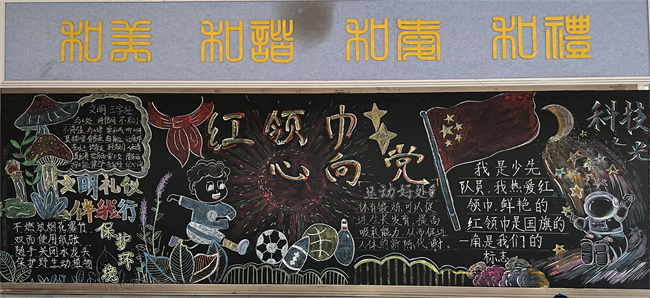 和美 和諧 和惠 和禮
文明三字经
红领巾
心向党
科技
之
光
文明礼仪
伴我行
不燃放烟花爆竹
双面使用纸张
随手关闭水龙头
保护野生动植物
保护环境
运动好处多
体育锻炼可以促
进生长发育,提高
吸氧能力,从而促进
人体的新陈代谢。
我是少先
队员,我热爱红
领巾,鲜艳的
红领巾是国旗的
一角是我们的
标志。